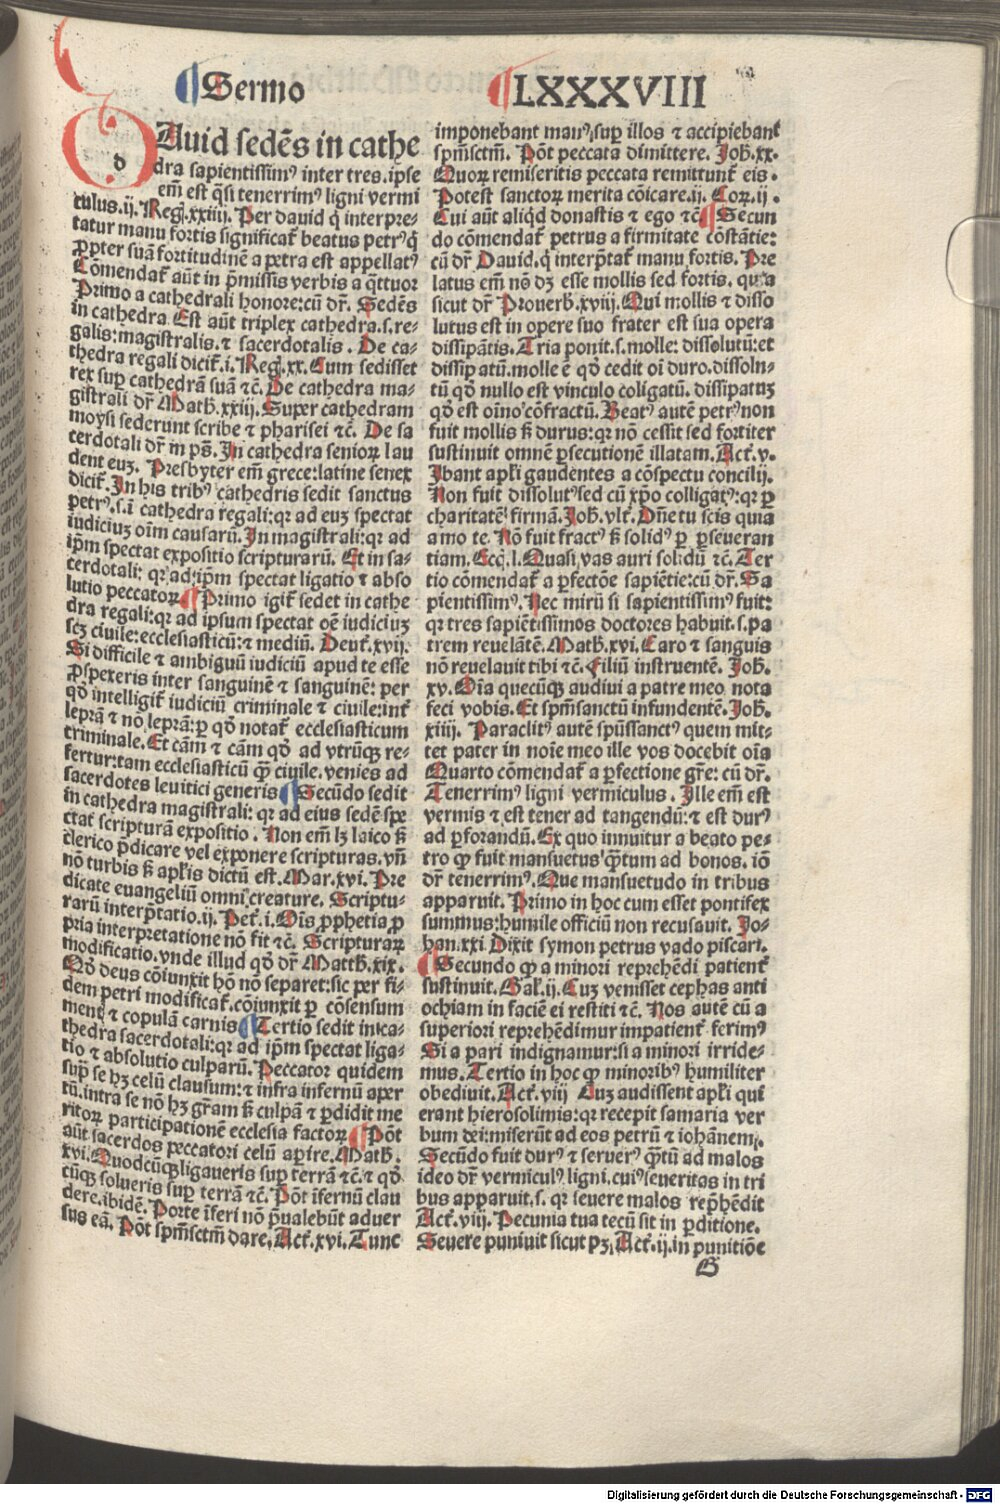 Sermo LXXXVIII
d
Auid sedēs in cathe
dra sapientissimꝰ inter tres. ipse
em̄ est q̄si tenerrimꝰ ligni vermi
culus. ij. Reg. xxiiij. Per dauid q̇ interpre-
tatur manu fortis significat᷑ beatus petrꝰ q̇
ꝓpter suā fortitudinē a petra est appellatꝰ
Cōmendat᷑ aūt in p̄missis verbis a q̄ttuor
Primo a cathedrali honore: cū dr̄. Sedēs
in cathedra. Est aūt triplex cathedra. s. re-
galis: magistralis. ⁊ sacerdotalis. De ca-
thedra regali dicit᷑. i. Reg. xx. Cum sedisset
rex suꝑ cathedrā suā ⁊c̄. De cathedra ma-
gistrali dr̄ Math. xxiij. Super cathedram
moysi sederunt scribe ⁊ pharisei ⁊c̄. De sa
cerdotali dr̄ in ps̄. In cathedra senioꝝ lau
dent euꝫ. Presbyter em̄ grece: latine senex
dicit᷑. In his tribꝰ cathedris sedit sanctus
petrꝰ. s. ī cathedra regali: qꝛ ad euꝫ spectat
iudiciuꝫ oīm causarū. In magistrali: qꝛ ad
ip̄m spectat expositio scripturarū. Et in sa-
cerdotali: qꝛ ad ip̄m spectat ligatio ⁊ abso
lutio peccatoꝝ. Primo igit᷑ sedet in cathe
dra regali: qꝛ ad ipsum spectat oē iudiciuꝫ
scꝫ ciuile: ecclesiasticū: ⁊ mediū. Deut᷑. xvij.
Si difficile ⁊ ambiguū iudiciū apud te esse
ꝓspexeris inter sanguinē ⁊ sanguinē: per
qd̓ intelligit᷑ iudiciū criminale ⁊ ciuile: int᷑
leprā ⁊ nō leprā: ꝑ qd̓ notat᷑ ecclesiasticum
criminale. Et cām ⁊ cām qd̓ ad vtrūqꝫ re-
fertur: tam ecclesiasticū ꝙ̄ ciuile. venies ad
sacerdotes leuitici generis Secūdo sedit
in cathedra magistrali: qꝛ ad eius sedē spe
ctat scripturā expositio. Non em̄ lꝫ laico sꝫ
clerico p̄dicare vel exponere scripturas. vn̄
nō turbis sꝫ apl̓is dictū est. Mar. xvi. Pre
dicate euangeliū omni creature. Scriptu-
rarū interp̄tatio. ij. Pet᷑. i. Oīs ꝓphetia ꝓ
pria interpretatione nō fit ⁊c̄. Scripturaꝝ
modificatio. vnde illud qd̓ dr̄ Matth. xix.
Qd̓ deus cōiunxit hō nō separet: sic per fi-
dem petri modificat᷑. cōiunxit ꝑ cōsensum
ment᷑ ⁊ copulā carnis Tertio sedit in ca-
thedra sacerdotali: qꝛ ad ip̄m spectat liga-
tio ⁊ absolutio culparū. Peccator quidem
suꝑ se hꝫ celū clausum: ⁊ infra infernū aper
tū. intra se nō hꝫ gr̄am sꝫ culpā ⁊ ꝑdidit me
ritoꝝ participationē ecclesia factoꝝ Pōt
aūt sacerdos peccatori celū aꝑire. Math.
xvi. Quodcūqꝫ ligaueris suꝑ terrā ⁊c̄. ⁊ qd̓
cūqꝫ solueris suꝑ terrā ⁊c̄. Pōt īfernū clau
dere. ibidē. Porte īferi nō p̄ualebūt aduer
sus eā. Pōt spm̄sctm̄ dare. Act᷑. xvi. Tunc
imponebant manꝰ suꝑ illos ⁊ accipiebant
spm̄sctm̄. Pōt peccata dimittere. Joh. xx.
Quoꝝ remiseritis peccata remittunt᷑ eis.
Potest sanctoꝝ merita cōicare. ij. Coꝝ. ij.
Cui aūt aliqd̓ donastis ⁊ ego ⁊c̄ Secun
do cōmendat᷑ petrus a firmitate cōstātie:
cū dr̄ Dauid. q̇ interp̄tat᷑ manu fortis. Pre
latus em̄ nō dꝫ esse mollis sed fortis. quia
sicut dr̄ Prouerb. xviij. Qui mollis ⁊ disso
lutus est in opere suo frater est sua opera
dissipātis. Tria ponit. s. molle: dissolutū: et
dissipatū. molle ē qd̓ cedit oī duro. dissolu-
tū qd̓ nullo est vinculo coligatū. dissipatuꝫ
qd̓ est oīno cōfractū. Beatꝰ autē petrꝰ non
fuit mollis sꝫ durus: qꝛ nō cessit sed fortiter
sustinuit omnē ꝑsecutionē illatam. Act᷑. v.
Ibant apl̓i gaudentes a cōspectu concilij.
Non fuit dissolutꝰ sed cū xp̄o colligatꝰ: qꝛ ꝑ
charitatē firmā. Joh. vlt᷑. Dn̄e tu scis quia
amo te. Nō fuit fractꝰ sꝫ solidꝰ ꝑ ꝑseueran
tiam. Eccl̓. l. Quasi vas auri solidū ⁊c̄. Ter
tio cōmendat᷑ a ꝑfectōe sapiētie: cū dr̄. Sa
pientissimꝰ. Nec mirū si sapientissimꝰ fuit:
qꝛ tres sapiētissimos doctores habuit. s. pa
trem reuelātē. Math. xvi. Caro ⁊ sanguis
nō reuelauit tibi ⁊c̄. Filiū instruentē. Joh.
xv. Oīa quecūqꝫ audiui a patre meo nota
feci vobis. Et spm̄sanctū infundentē. Joh.
xiiij. Paraclitꝰ autē spūssanctꝰ quem mit-
tet pater in noīe meo ille vos docebit oīa
Quarto cōmendat᷑ a ꝑfectione gr̄e: cū dr̄.
Tenerrimꝰ ligni vermiculus. Ille em̄ est
vermis ⁊ est tener ad tangendū: ⁊ est durꝰ
ad ꝑforandū. Ex quo innuitur a beato pe-
tro ꝙ fuit mansuetus q̄tum ad bonos. iō
dr̄ tenerrimꝰ. Que mansuetudo in tribus
apparuit. Primo in hoc cum esset pontifex
summus: humile officiū non recusauit. Jo-
han. xxi Dixit symon petrus vado piscari.
Secundo ꝙ a minori reprehēdi patient᷑
sustinuit. Gal. ij. Cuꝫ venisset cephas anti
ochiam in faciē ei restiti ⁊c̄. Nos autē cū a
superiori reprehēdimur impatient᷑ ferimꝰ
Si a pari indignamur: si a minori irride-
mus. Tertio in hoc ꝙ minoribꝰ humiliter
obediuit. Act᷑. viij Cuꝫ audissent apl̓i qui
erant hierosolimis: qꝛ recepit samaria ver
bum dei: miserūt ad eos petrū ⁊ iohānem.
Secūdo fuit durꝰ ⁊ seuerꝰ q̄tū ad malos
ideo dr̄ vermiculꝰ ligni. cuiꝰ seueritas in tri
bus apparuit. s. qꝛ seuere malos rep̄hēdit
Act᷑. viij. Pecunia tua tecū sit in ꝑditione.
Seuere puniuit sicut pꝫ. Act᷑. ij. in punitiōe
B
Digitalisierung gefördert durch die Deutsche Forschungsgemeinschaft - DFG